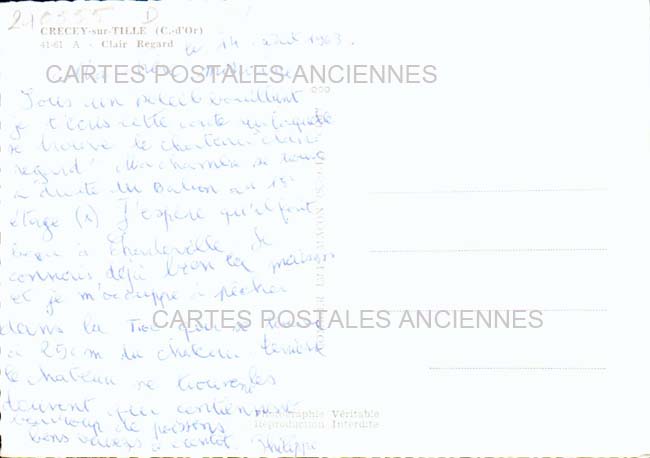 210555 D
CRECEY-sur-TILLE (C.-d'Or)
41-61 A - Clair Regard
le 14 août 1963.
CARTES POSTALES ANCIENNES
Sous un soleil bouillant
je t'écris cette carte sur laquelle
se trouve le chateau clair
regard". Ma chambre se trouve
a droite du Balcon au 1er
étage (x) J'espère qu'il fait
beau à Charleville. Je
connais déjà bien la maison
et je m'occuppe à pêcher
dans la Tille qui se trouve
CARTES POSTALES ANCIENNES
a 250m du chateau. Derrière
le chateau se trouve les
qui contiennent
beaucoup de poissons
bons baisers à bientot Philippe
Photographie Véritable
Reproduction Interdite